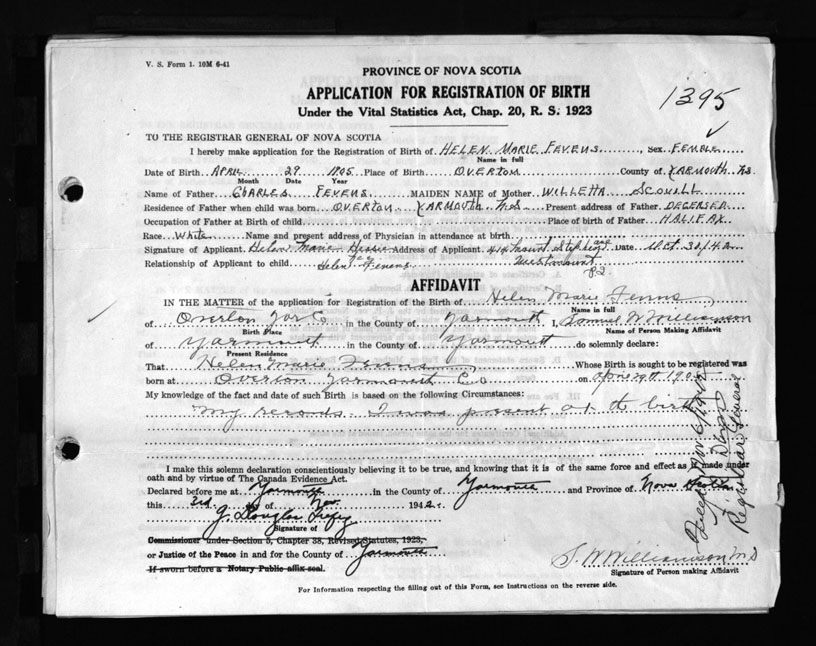 V. S. Form 1. 10M 6-41
PROVINCE OF NOVA SCOTIA
APPLICATION FOR REGISTRATION OF BIRTH
Under the Vital Statistics Act, Chap. 20, R. S. 1923
1395
TO THE REGISTRAR GENERAL OF NOVA SCOTIA
I hereby make application for the Registration of Birth of HELEN MARIE FEVENS, Sex FEMALE
Name in full
Date of Birth APRIL 29 1905 Place of Birth OVERTON County of YARMOUTH N.S.
Month Date Year
Name of Father CHARLES FEVENS MAIDEN NAME of Mother WILLETTA SCOVILL
Residence of Father when child was born OVERTON YARMOUTH N.S Present address of Father DECEASED
Occupation of Father at Birth of child Place of birth of Father HALIFAX
Race White Name and present address of Physician in attendance at birth
Signature of Applicant Helen Marie Address of Applicant 414 Mount Stephen ave Date Oct 30/42
Relationship of Applicant to child Helen Fevens Westmount
P.2.
AFFIDAVIT
IN THE MATTER of the application for Registration of the Birth of Helen Marie Fevens
Name in full
of Overton Yar Co in the County of Yarmouth I, Samuel W Williamson
Birth Place Name of Person Making Affidavit
of Yarmouth in the County of Yarmouth do solemnly declare:
Present Residence
That Helen Marie Fevens Whose Birth is sought to be registered was
born at Overton Yarmouth Co on April 29th 1905
My knowledge of the fact and date of such Birth is based on the following Circumstances:
My records. I was present at the birth
I make this solemn declaration conscientiously believing it to be true, and knowing that it is of the same force and effect as if made under
oath and by virtue of The Canada Evidence Act.
Declared before me at Yarmouth in the County of Yarmouth and Province of Nova Scotia
this 3rd day of Nov. 1942.
J. Douglas
Signature of
Commissioner under Section 5, Chapter 38, Revised Statutes, 1923,
or Justice of the Peace in and for the County of Yarmouth
If sworn before a Notary Public affix seal.
S. W Williamson M D
Signature of Person making Affidavit
For Information respecting the filling out of this Form, see Instructions on the reverse side.
Filed Nov 6/1942
Deputy
Registrar General